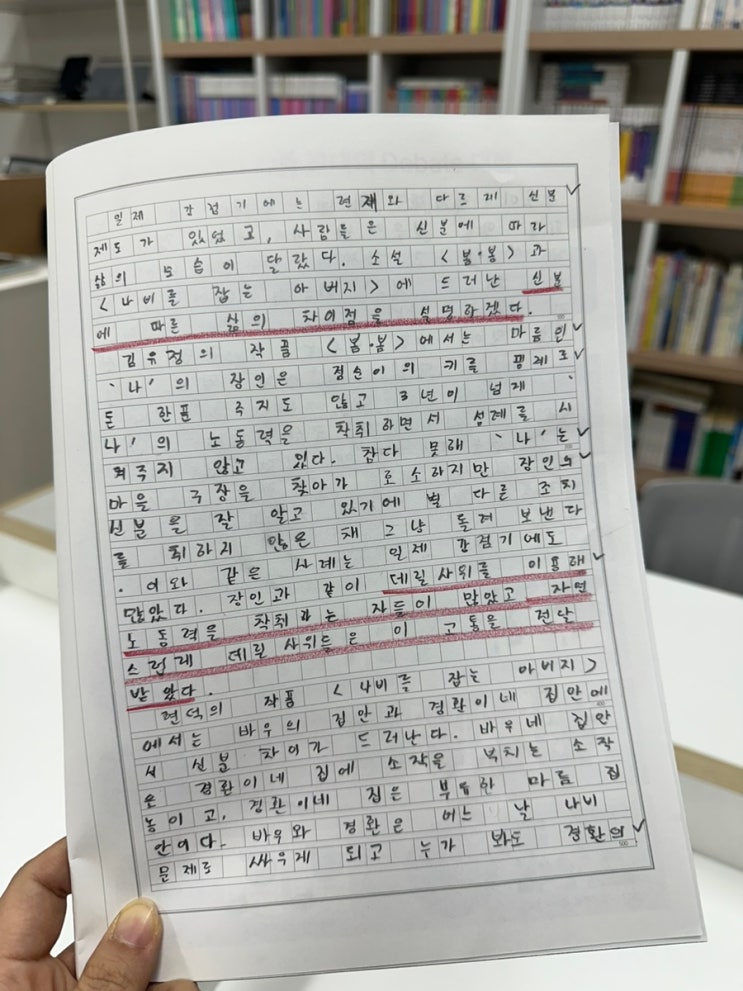 일제 강점기에는 현재와 다르게 신분
제도가 있었고, 사람들은 신분에 따라
삶의 모습이 달랐다. 소설 <봄·봄>과
<나비를 잡는 아버지>에 드러난 신분
에 따른 삶의 차이점을 설명하겠다.
김유정의 작품 <봄·봄>에서는 마름인
'나'의 장인은 점순이의 키를 핑계로
돈 한푼 주지도 않고 3년이 넘게 '
나'의 노동력을 착취하면서 성례를 시
켜주지 않고 있다. 참다 못해 '나'는
마을 구장을 찾아가 호소하지만 장인의
신분을 잘 알고 있기에 별 다른 조치
를 취하지 않은 채 그냥 돌려 보낸다
. 이와 같은 사례는 일제 강점기에도
많았다. 장인과 같이 데릴사위를 이용해
노동력을 착취하는 자들이 많았고 자연
스럽게 데릴사위들은 이 고통을 전달
받았다.
현덕의 작품 <나비를 잡는 아버지>
에서는 바우의 집안과 경환이네 집안에
서 신분 차이가 드러난다. 바우네 집안
은 경환이네 집에 소작을 부치는 소작
농이고, 경환이네 집은 부유한 마름 집
안이다. 바우와 경환은 어느 날 나비
문제로 싸우게 되고 누가 봐도 경환의
500